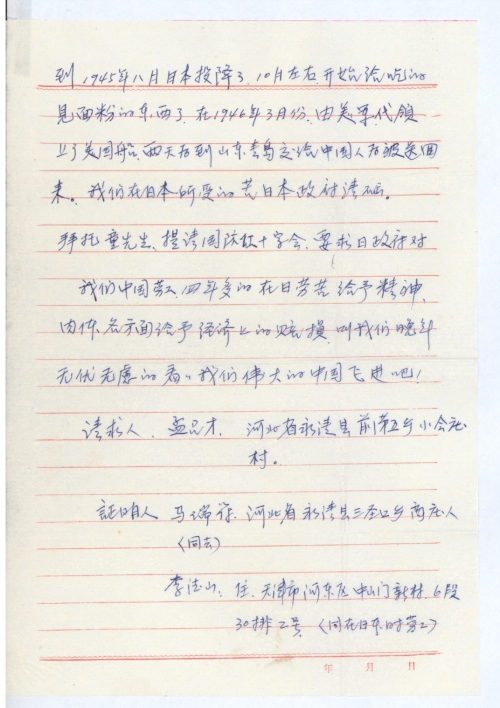 到1945年八月日本投降了,10月左右开始给吃的
见面粉的东西了,在1946年3月份,由美军代领
上了美国船,两天后到山东青岛交给中国人后被送回
来。我们在日本所受的苦日本政府清楚。
拜托童先生,提请国际红十字会,要求日政府对
我们中国劳工,四年多的在日劳苦给予精神、
肉体,各方面给予经济上的赔损,叫我们晚年
无忧无虑的看:我们伟大的中国飞进吧!
请求人、孟 才,河北省永清县前第五乡小仝庄
村。
証明人 马瑞保,河北省永清县三圣口乡 庄人
(同去)
李法山:住,天津市河东区中山门新村,6段
30排2号 (同在日本时劳工)
年 月 日